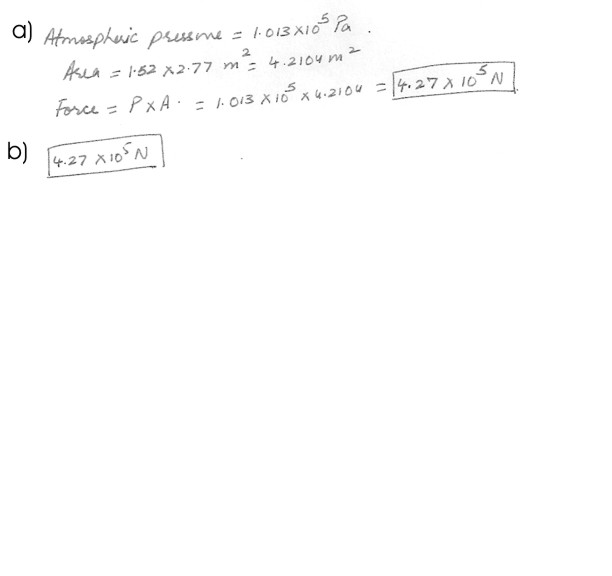 a) Atmospheric pressure = 1.013 × 10⁵ Pa .
Area = 1.52 × 2.77 m² = 4.2104 m²
Force = P × A . = 1.013 × 10⁵ × 4.2104 = 4.27 × 10⁵ N
b) 4.27 × 10⁵ N